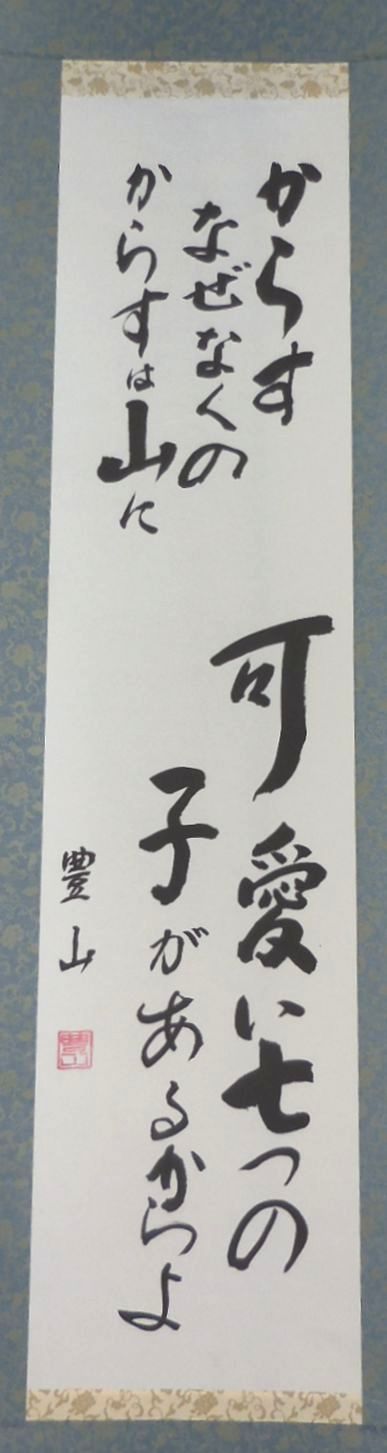 からす
なぜなくの
からすは山に
可愛い七つの
子があるからよ
豊山
豊山